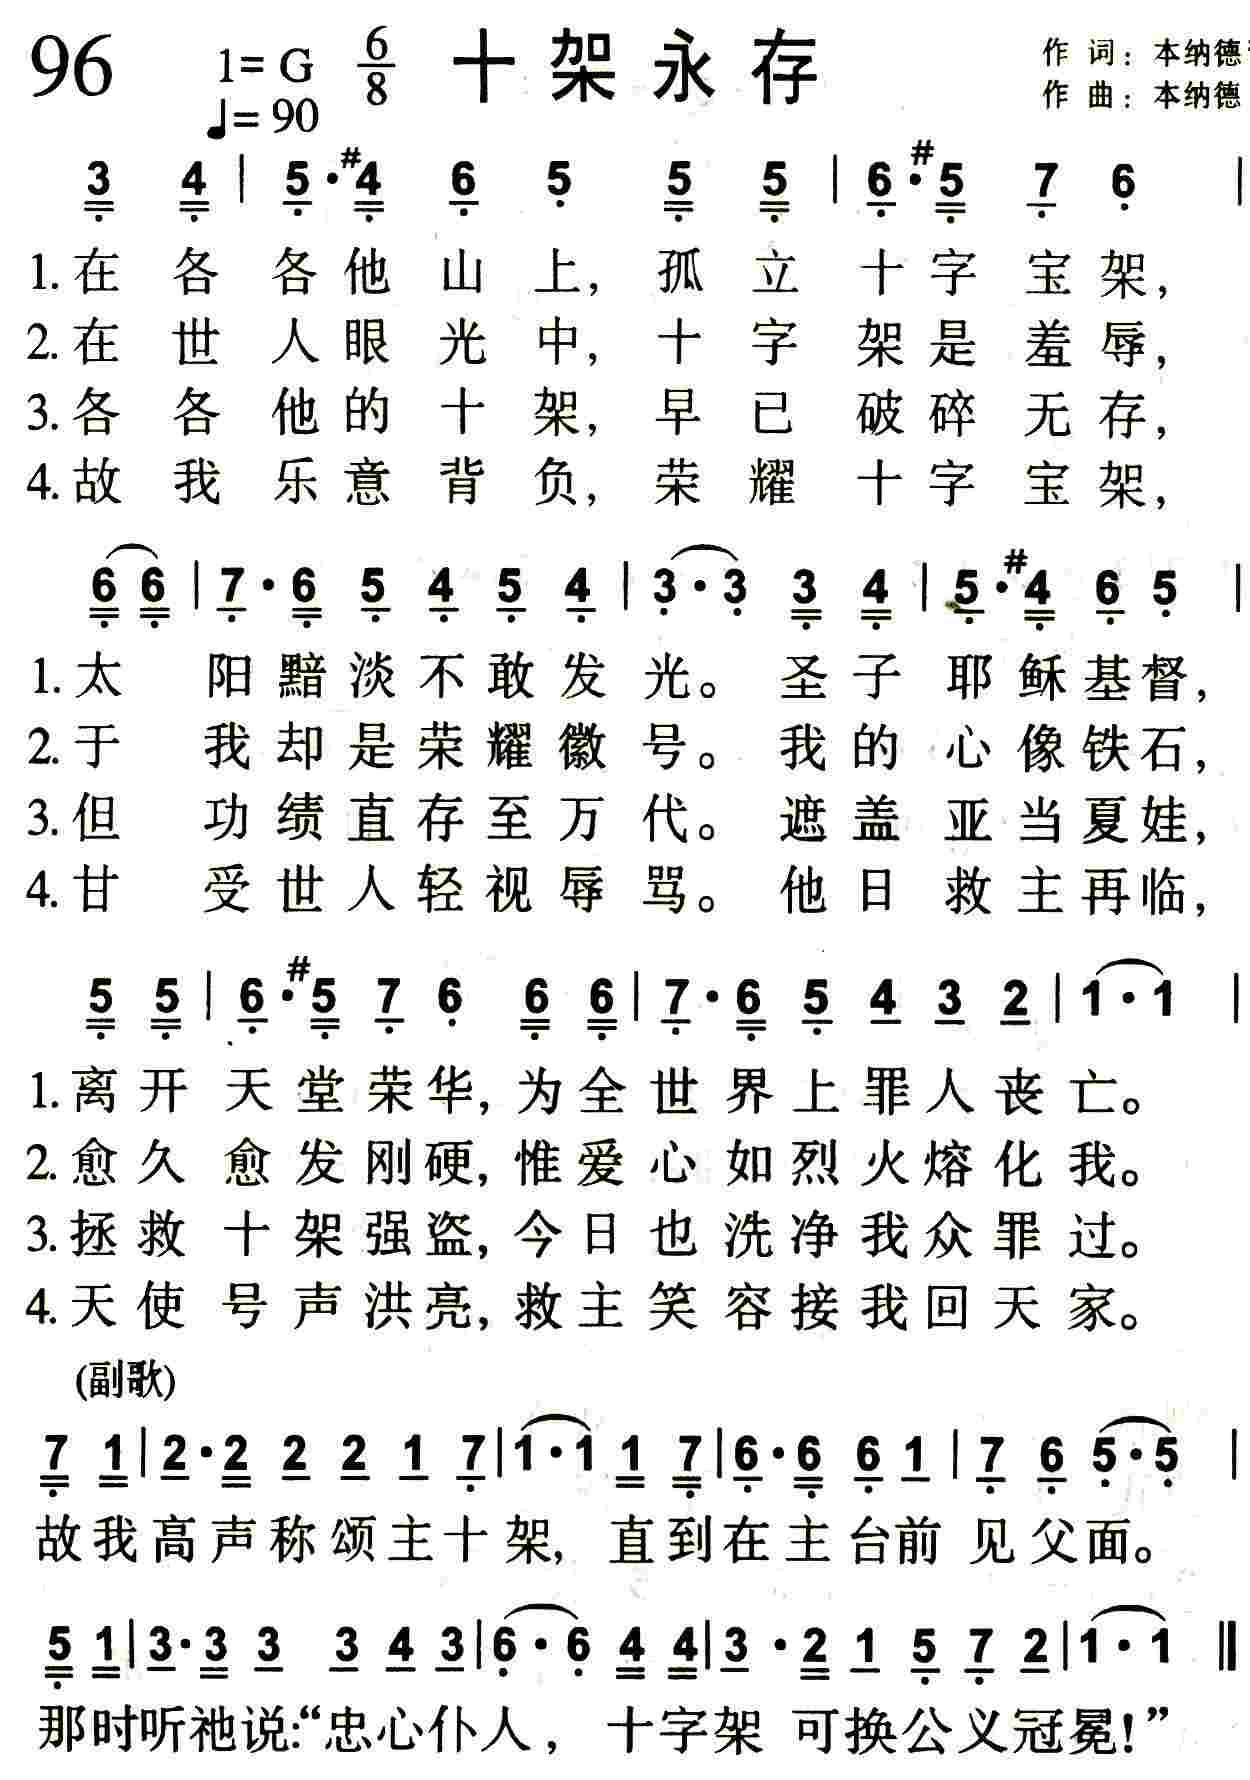 96 1=G 6/8 十架永存 作词：本纳德
♩=90 作曲：本纳德
3 4 | 5·#4 6 5 5 5 | 6·#5 7 6 |
1.在各各他山上，孤立十字宝架，
2.在世人眼光中，十字架是羞辱，
3.各各他的十架，早已破碎无存，
4.故我乐意背负，荣耀十字宝架，
6 6 | 7·6 5 4 5 4 | 3·3 3 4 | 5·#4 6 5 |
1.太阳黯淡不敢发光。圣子耶稣基督，
2.于我却是荣耀徽号。我的心像铁石，
3.但功绩直存至万代。遮盖亚当夏娃，
4.甘受世人轻视辱骂。他日救主再临，
5 5 | 6·#5 7 6 6 6 | 7·6 5 4 3 2 | 1·1 |
1.离开天堂荣华，为全世界上罪人丧亡。
2.愈久愈发刚硬，惟爱心如烈火熔化我。
3.拯救十架强盗，今日也洗净我众罪过。
4.天使号声洪亮，救主笑容接我回天家。
(副歌)
7 1 | 2·2 2 2 1 7 | 1·1 1 7 | 6·6 6 1 | 7 6 5·5 |
故我高声称颂主十架，直到在主台前见父面。
5 1 | 3·3 3 3 4 3 | 6·6 4 4 | 3·2 1 5 7 2 | 1·1 ‖
那时听祂说：“忠心仆人，十字架可换公义冠冕！”